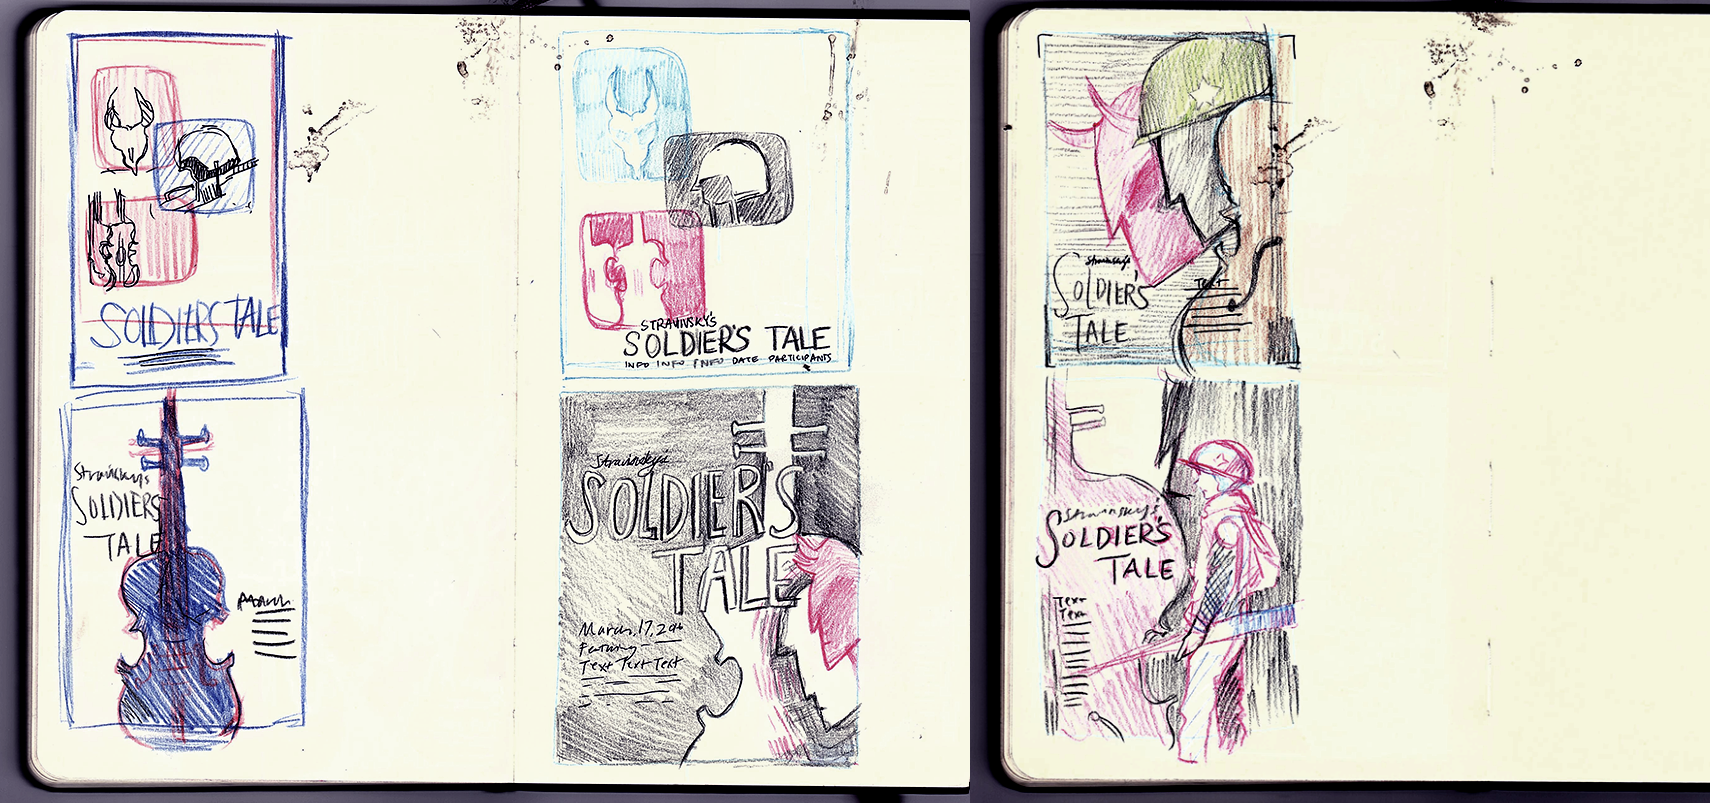 SOLDIERS TALE
Stravinsky's
SOLDIERS
TALE
STRAVINSKY'S
SOLDIER'S TALE
INFO INFO INFO DATE PARTICIPANTS
Stravinsky's
SOLDIER'S
TALE
March, 17, 20th
Featuring
Text Text Text
Stravinsky's
SOLDIER'S
TALE
TEXT
Stravinsky's
SOLDIER'S
TALE
Text
Text